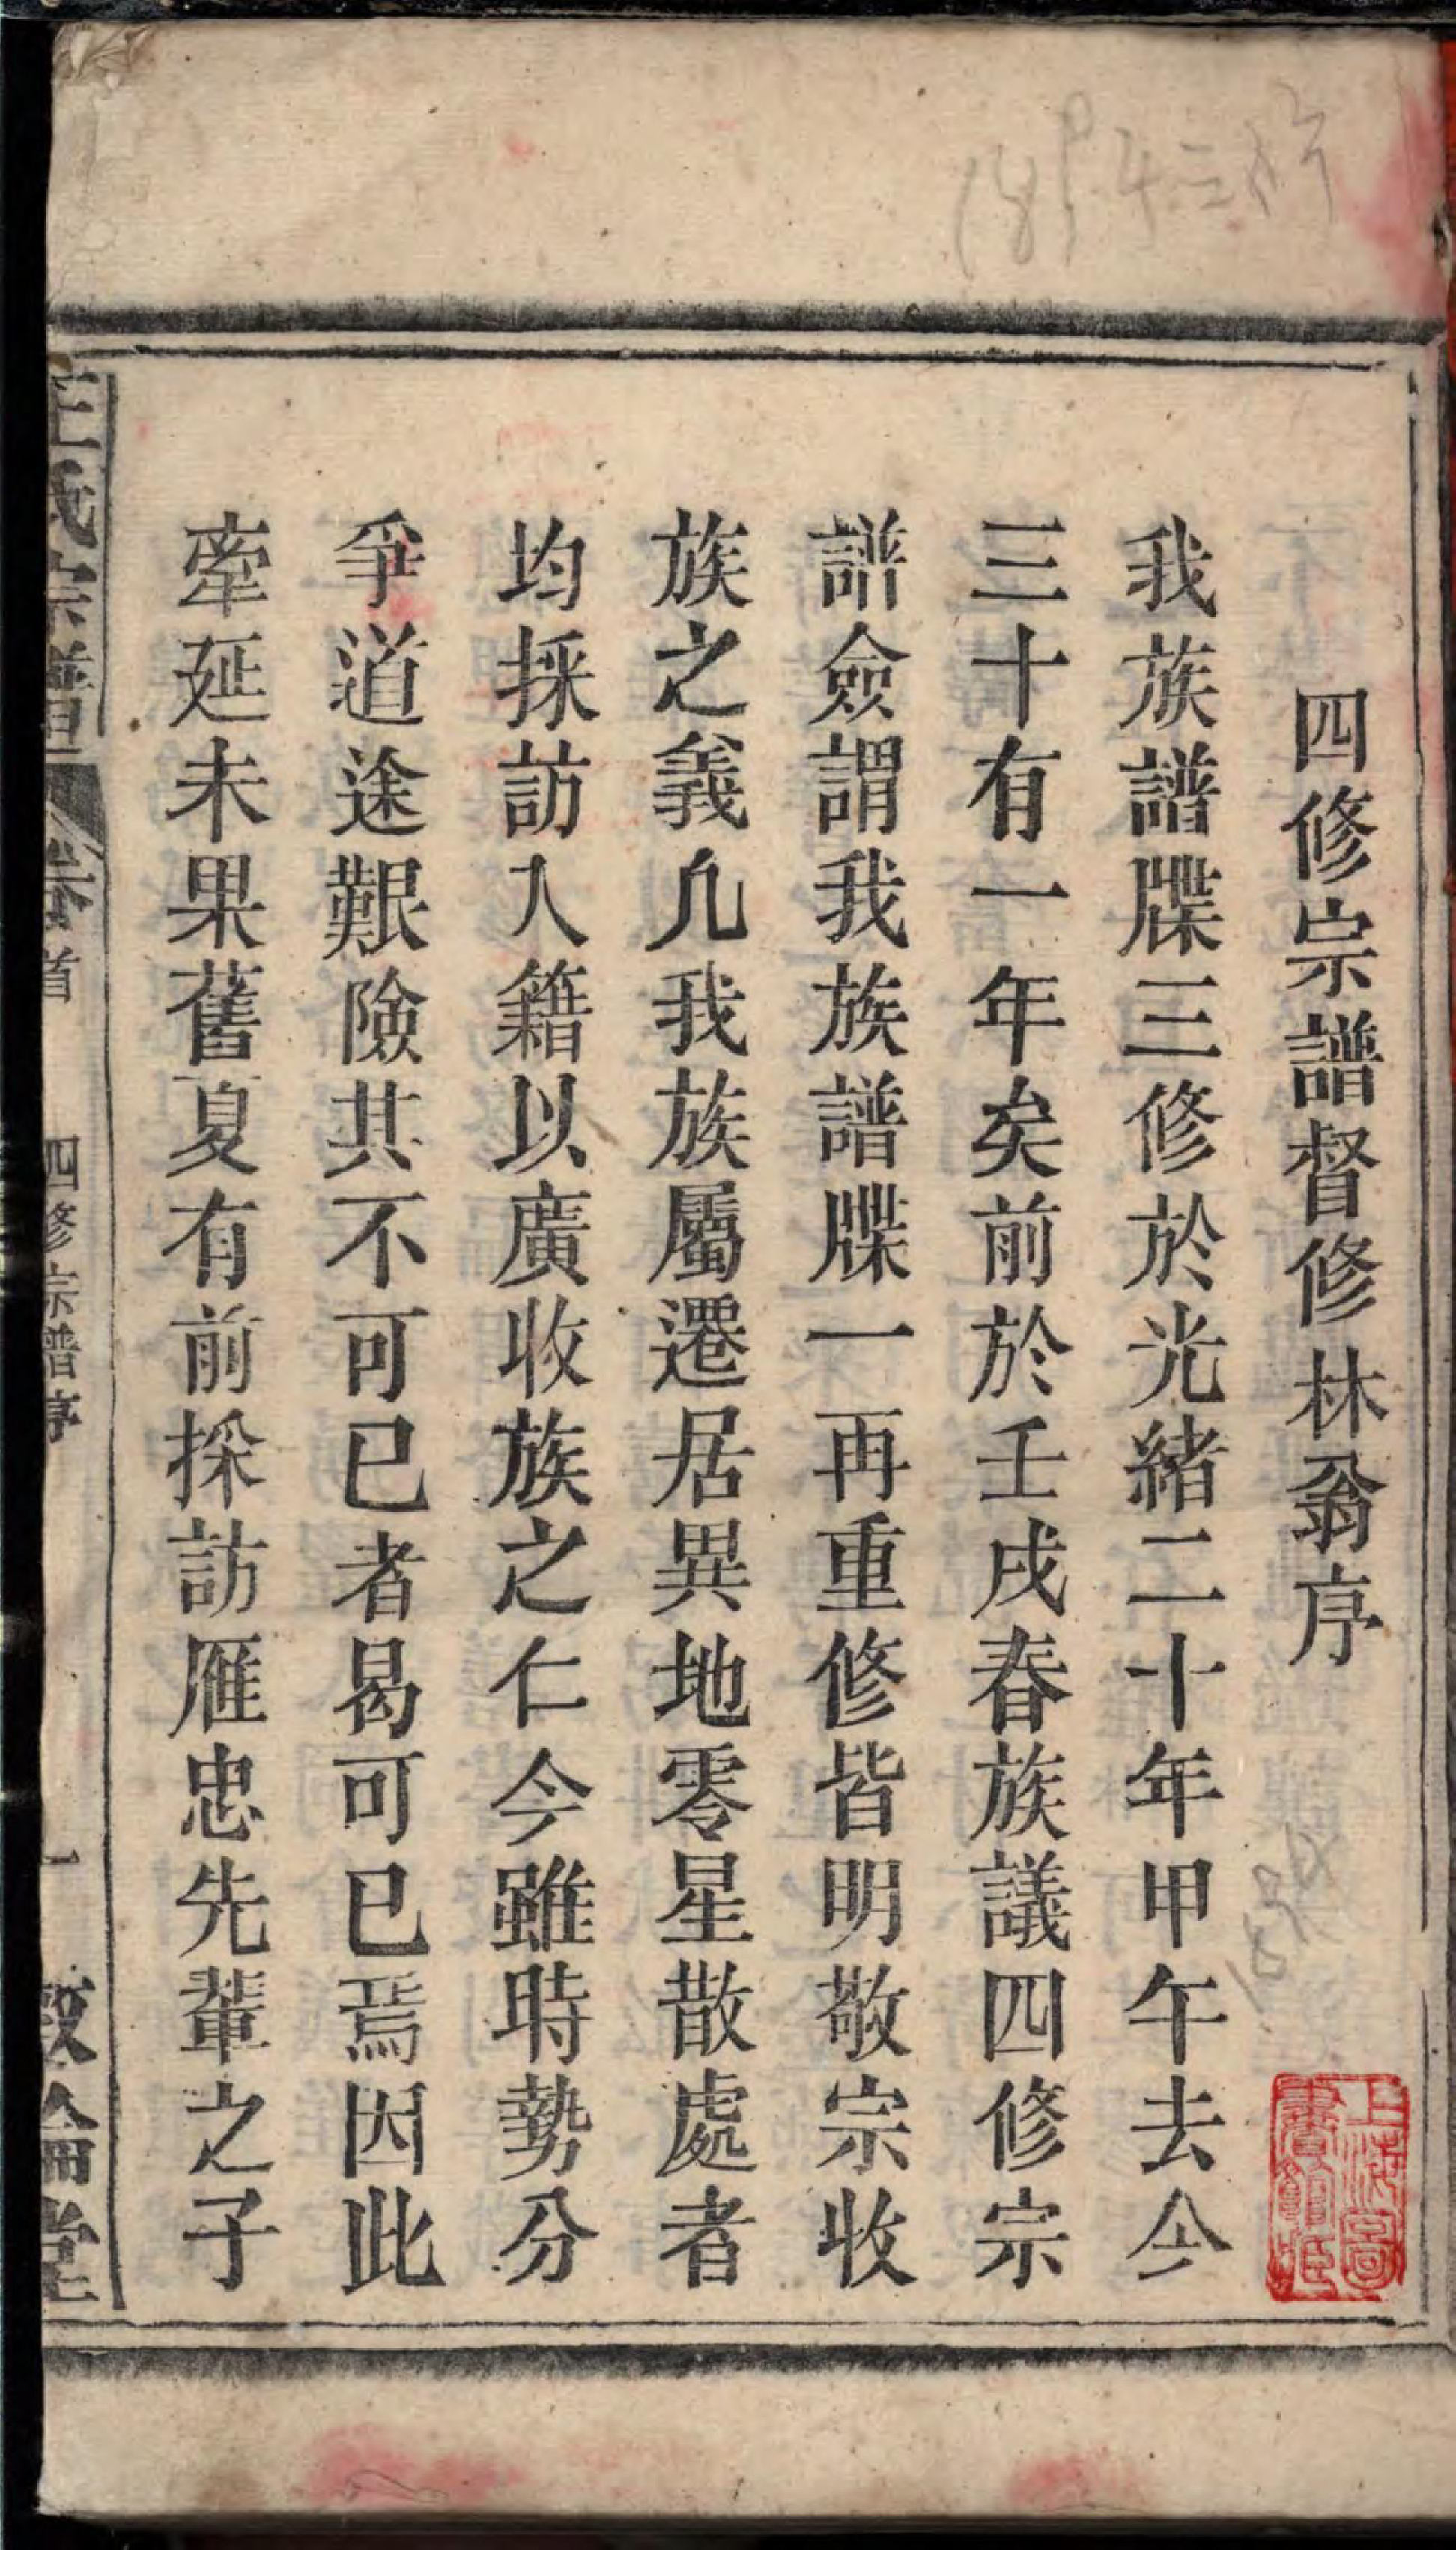 四修宗譜督修林翁序
我族譜牒三修於光緒二十年甲午去今
三十有一年矣前於壬戌春族議四修宗
譜僉謂我族譜牒一再重修皆明敬宗收
族之義凢我族屬遷居異地零星散處者
均採訪入籍以廣收族之仁今雖時勢分
爭道途艱險其不可已者曷可已焉因此
牽延未果舊夏有前採訪雁忠先輩之子
王氏宗譜 卷首 四修宗譜序 一 敦倫堂
上海圖書館藏
1894三修
1894